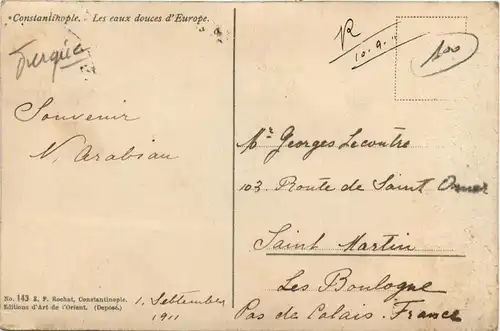 Constantinople. Les eaux douces d'Europe.
Turquie
Souvenir
N. Arabian
No. 143 E. F. Rochat, Constantinople.
Editions d'Art de l'Orient. (Deposé.)
1, September
1911
R
10.9.11
100
Mr Georges Lecoutre
103 Route de Saint Omer
Saint Martin
Les Boulogne
Pas de Calais. France